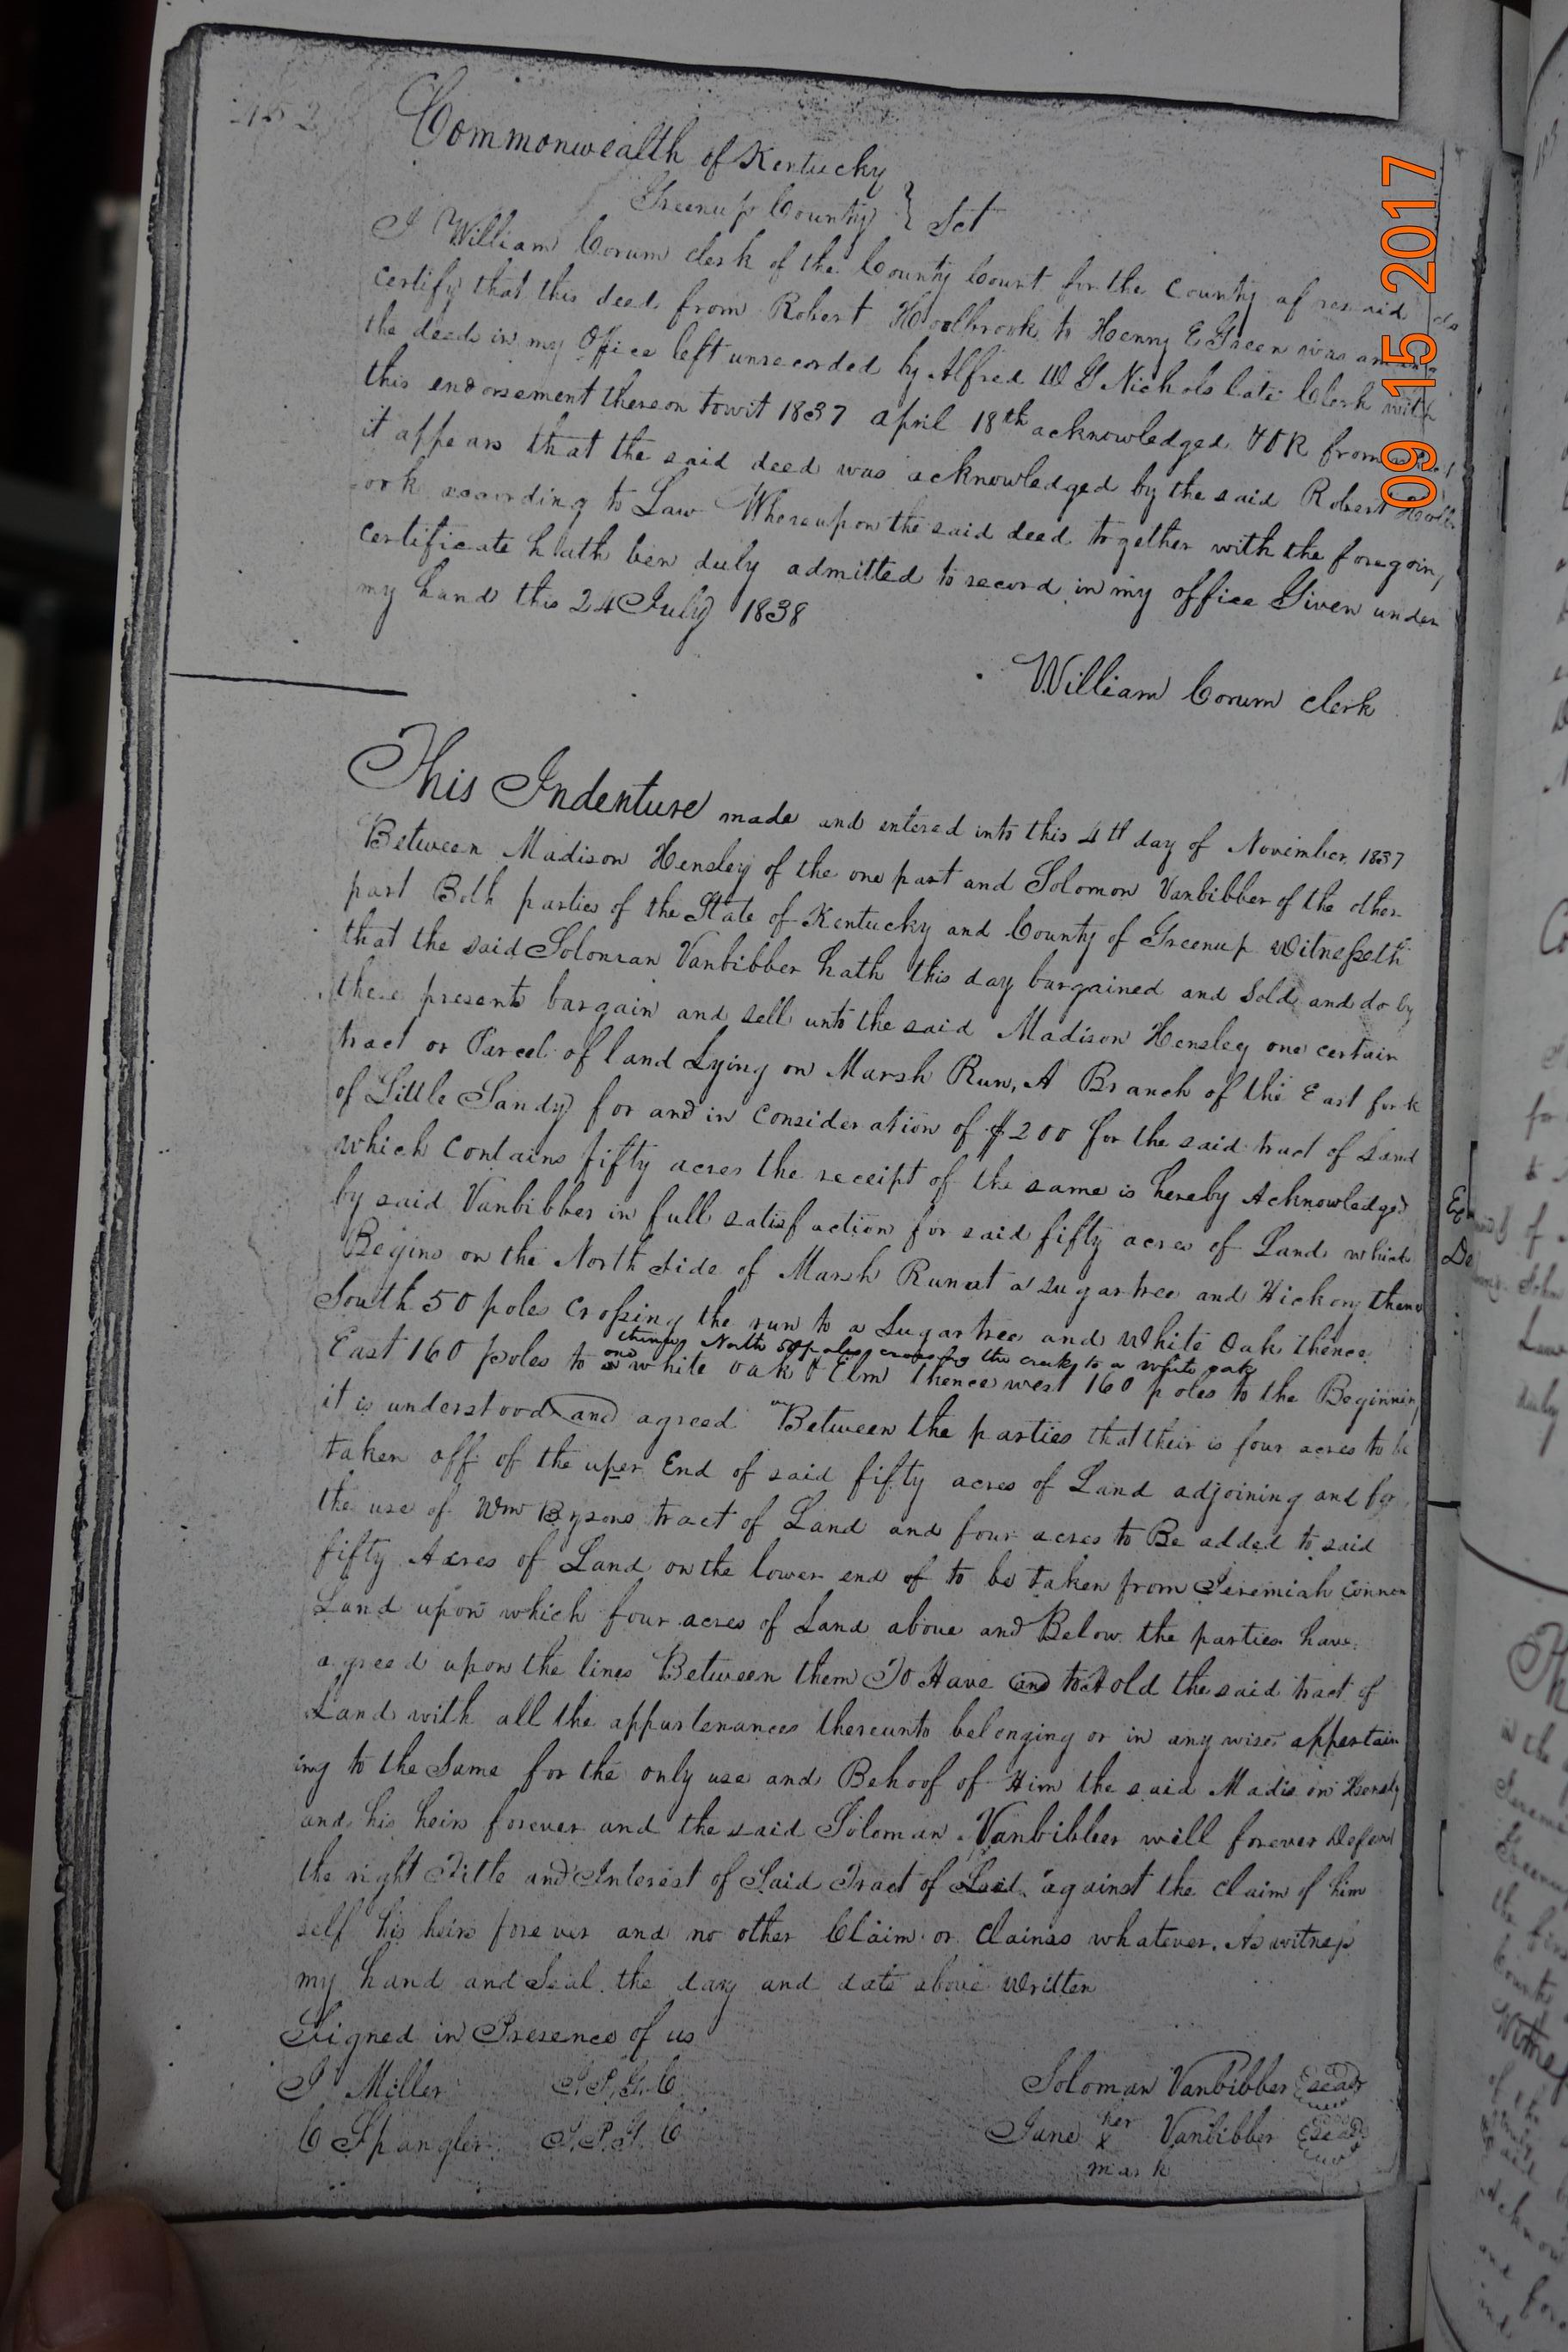 452
Commonwealth of Kentucky
Greenup County } Sct
I William Corum clerk of the County Court for the County aforesaid do
certify that this deed from Robert Hoolbrook to Henry E Green was among
the deeds in my Office left unrecorded by Alfred W G Nichols late Clerk with
this endorsement thereon towit 1837 april 18th acknowledged & OR from
it appears that the said deed was acknowledged by the said Robert Hoolbr
ook according to Law Whereupon the said deed together with the foregoing
certificate hath ben duly admitted to record in my office Given under
my hand this 24 July 1838
William Corum clerk
This Indenture made and entered into this 4th day of November 1837
Between Madison Hensley of the one part and Solomon Vanbibber of the other
part Both parties of the State of Kentucky and County of Greenup Witnesseth
that the said Soloman Vanbibber hath this day bargained and Sold and do by
these presents bargain and sell unto the said Madison Hensley one certain
tract or Parcel of land Lying on Marsh Run, A Branch of the East fork
of Little Sandy for and in consideration of $200 for the said tract of Land
which contains fifty acres the receipt of the same is hereby Acknowledged
by said Vanbibber in full satisfaction for said fifty acres of Land which
Begins on the North Side of Marsh Run at a sugartree and Hickory thence
South 50 poles crossing the run to a Sugartree and White Oak thence
thence North 50 poles crossing the creek to a white oak
East 160 poles to one white oak & Elm thence west 160 poles to the Beginning
it is understood and agreed Between the parties that their is four acres to be
taken off of the uper End of said fifty acres of Land adjoining and for
the use of Wm Brysons tract of Land and four acres to Be added to said
fifty Acres of Land on the lower end of to be taken from Jeremiah
Land upon which four acres of Land above and Below the parties have
agreed upon the lines Between them To Have and to Hold the said tract of
Land with all the appurtenances thereunto belonging or in any wise appertain
ing to the Same for the only use and Behoof of Him the said Madison Hensly
and his heirs forever and the said Soloman Vanbibber will forever Defend
the right Title and Interest of Said Tract of Land against the claim of him
self his heirs forever and no other Claim or Claims whatever. As witness
my hand and Seal the day and date above written
Signed in Presence of us
J Miller J.P.G.C Soloman Vanbibber Seal
C Spangler J.P.G.C Jane her x mark Vanbibber Seal
09 15 2017